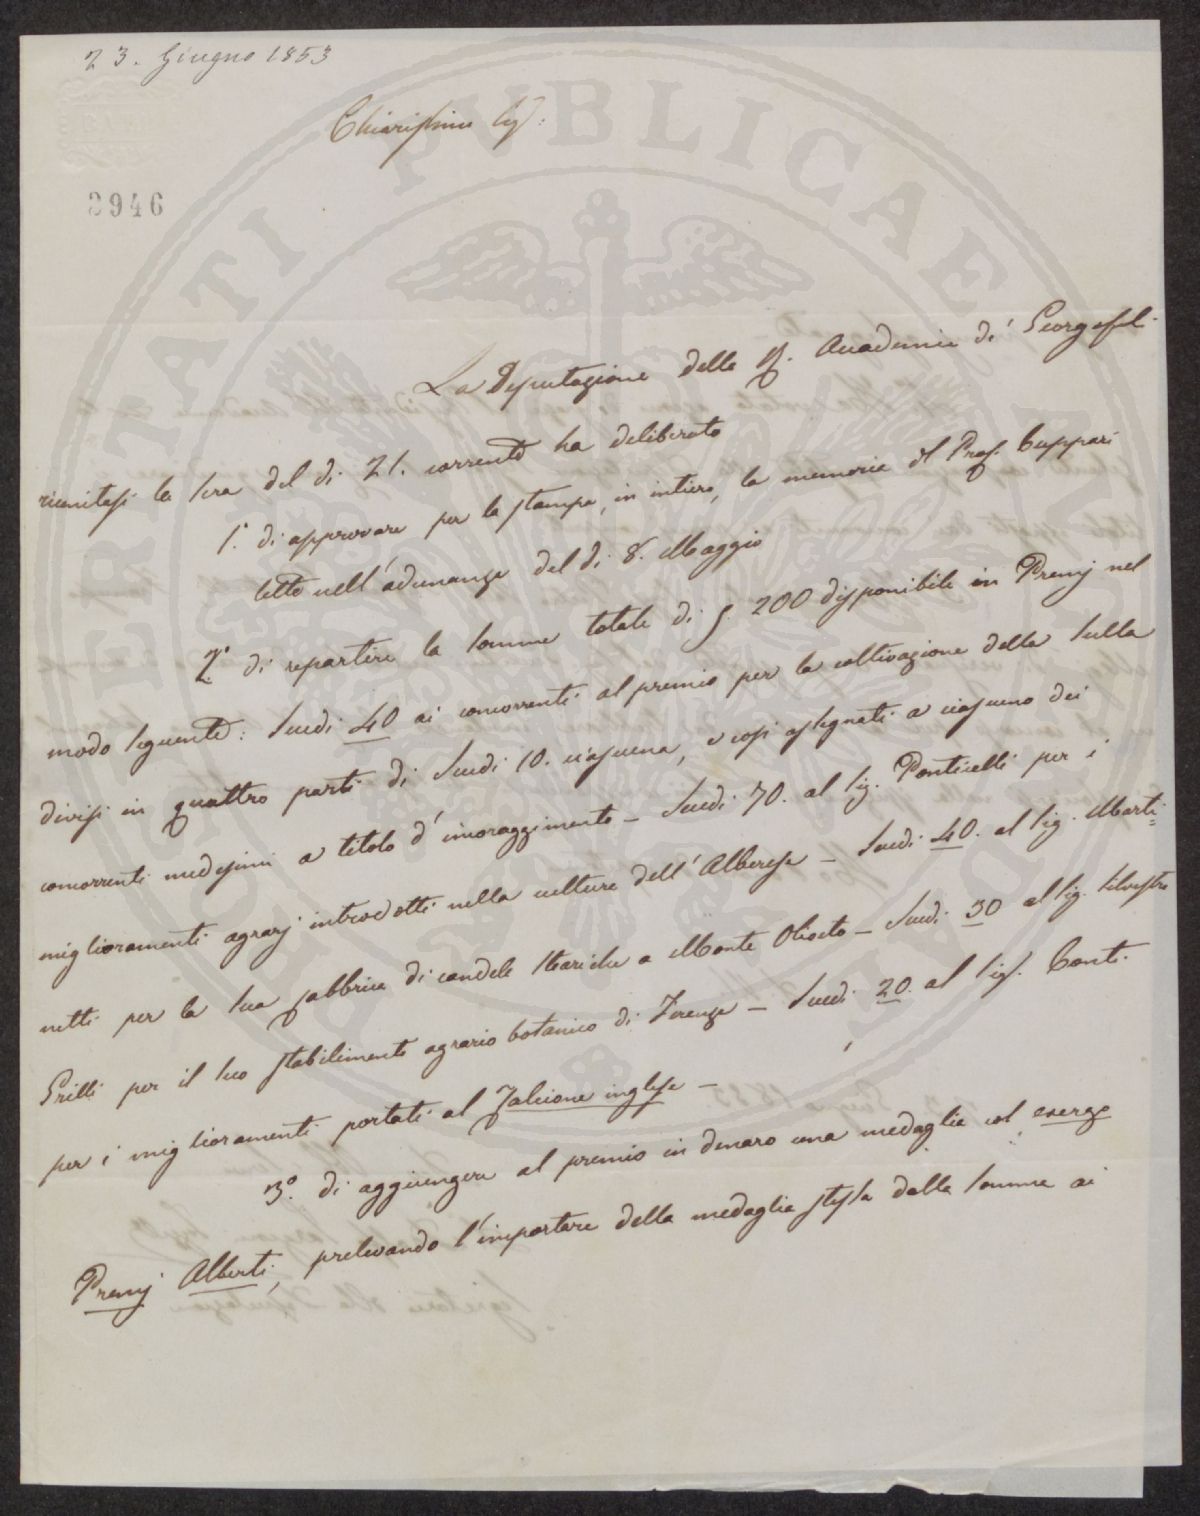 23. Giugno 1853
Chiarissimo Sig.
3946
PROSPERITATI PVBLICAE AVGENDAE
La Deputazione della R. Accademia di' Georgofili
riunitasi la sera del dì 21. corrente ha deliberato
1.° di approvare per la stampa, in intiero, la memoria del Prof. Cuppari
letta nell'adunanza del dì 8. Maggio
2.° di repartire la somma totale di S. 200 disponibile in Premj nel
modo seguente: Scudi 40 ai concorrenti al premio per la coltivazione della Sulla
divisi in quattro parti di Scudi 10. ciascuna, e così assegnati a ciascuno dei
concorrenti medesimi a titolo d'incoraggimento – Scudi 70. al Sig. Ponticelli per i
miglioramenti agrarj introdotti nella cultura dell'Alberese – Scudi 40. al Sig. Marti=
netti per la sua fabbrica di candele steariche a Monte Oliveto – Scudi 30 al Sig. Silvestro
Grilli per il suo stabilimento agrario botanico di Firenze – Scudi 20. al Sig. Conti
per i miglioramenti portati al Falcione inglese –
3.° di aggiungere al premio in denaro una medaglia col esergo
Premj Alberti, prelevando l'importare della medaglia stessa dalla somma ai